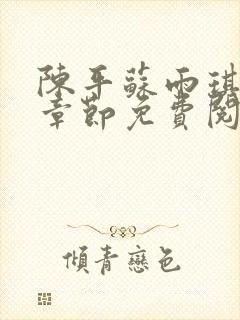 陳平蘇雨琪
章節免費閱
傾青戀色